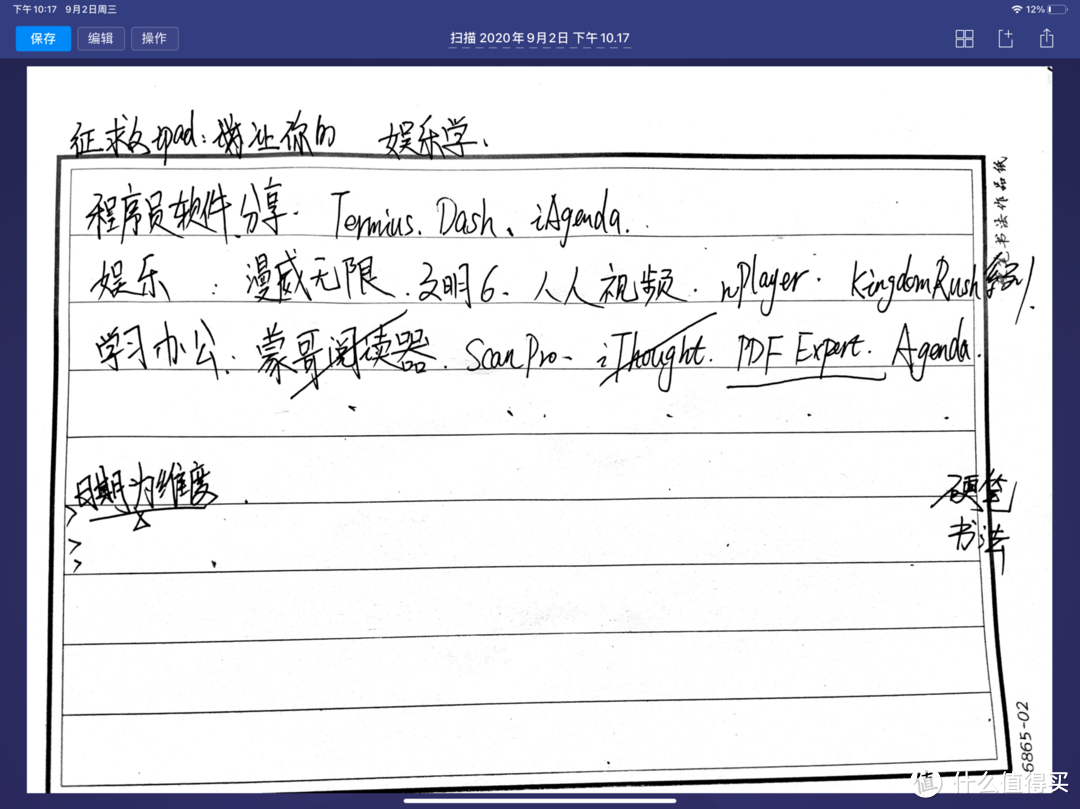 下午10:17 9月2日周三 12%
保存 编辑 操作 扫描 2020年9月2日 下午10.17
征救ipad:拼让你的 娱乐学.
程序员软件分享. Termius. Dash、iAgenda.
娱乐 : 漫威无限. 文明6. 人人视频. nPlayer. KingdomRush
学习办公: 蒙哥阅读器. Scan Pro. iThought. PDF Expert. Agenda.
日期为维度.
硬笔
书法
书法作品纸
6865-02
值 什么值得买